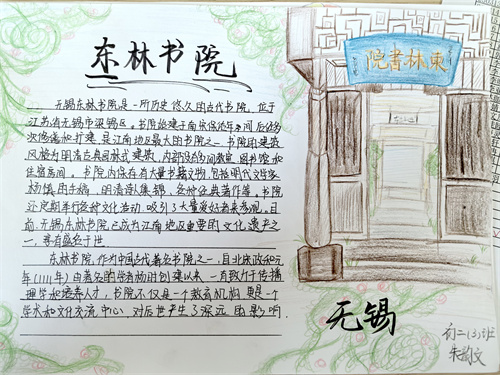 东林书院
無锡东林书院是一所历史悠久的古代书院，位于
江苏省无锡市梁溪区。书院始建于南宋
次修缮和扩建，是江南地区最大的书院之一。书院的建筑
风格为明清古典园林式建筑，内部设有多间教室、图书室和
住宿房间。书院内保存有大量书籍文物，包括明代文学家
杨慎的手稿、明清诗集锦、各种经典著作等。书院
还定期举行各种文化活动，吸引了大量爱好者来参观。目
前，无锡东林书院已成为江南地区重要的文化遗产之
一，享有盛名于世。
东林书院，作为中国古代著名书院之一，自北宋政和元
年(1111年)由著名的学者杨时创建以来，一直致力于传播
理学和培养人才，书院不仅是一个教育机构，更是一个
学术和文化交流中心，对后世产生了深远的影响。
東林書院
无锡
初二(3)班
朱韵文